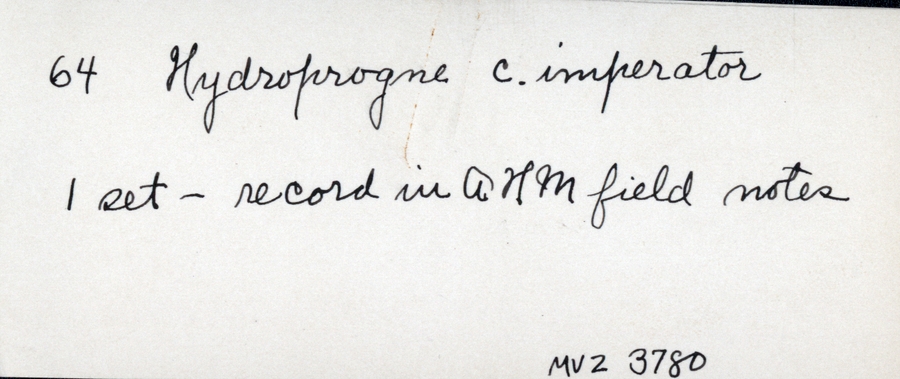 64 Hydroprogne c. imperator
1 set - record in AHM field notes
MVZ 3780